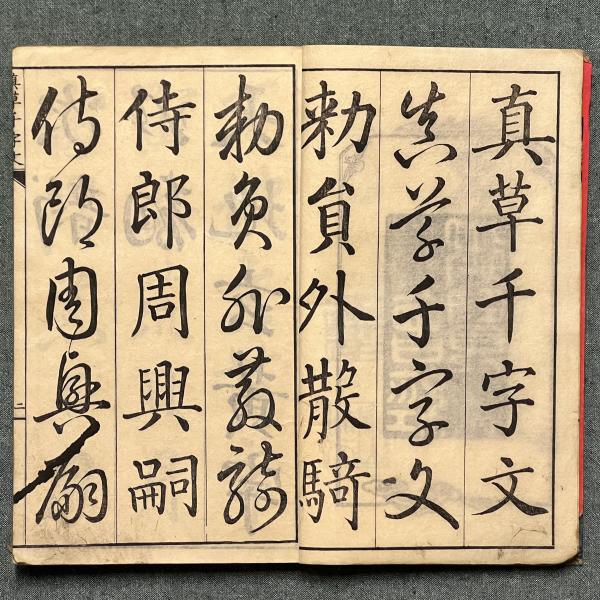 真草千字文
真草千字文
勅貟外散騎
勅貟外散騎
侍郎周興嗣
侍郎周興嗣
真草千字文
二